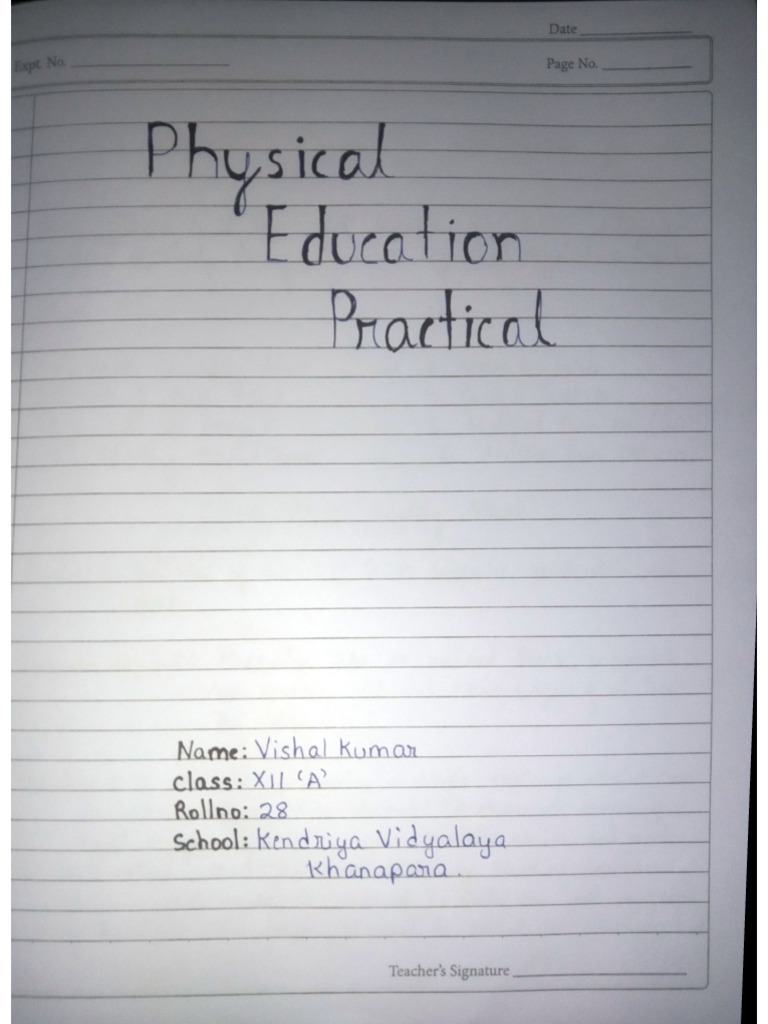 Date
Expt. No.
Page No.
Physical
Education
Practical
Name: Vishal Kumar
Class: XII 'A'
Rollno: 28
School: Kendriya Vidyalaya
Khanapara.
Teacher's Signature